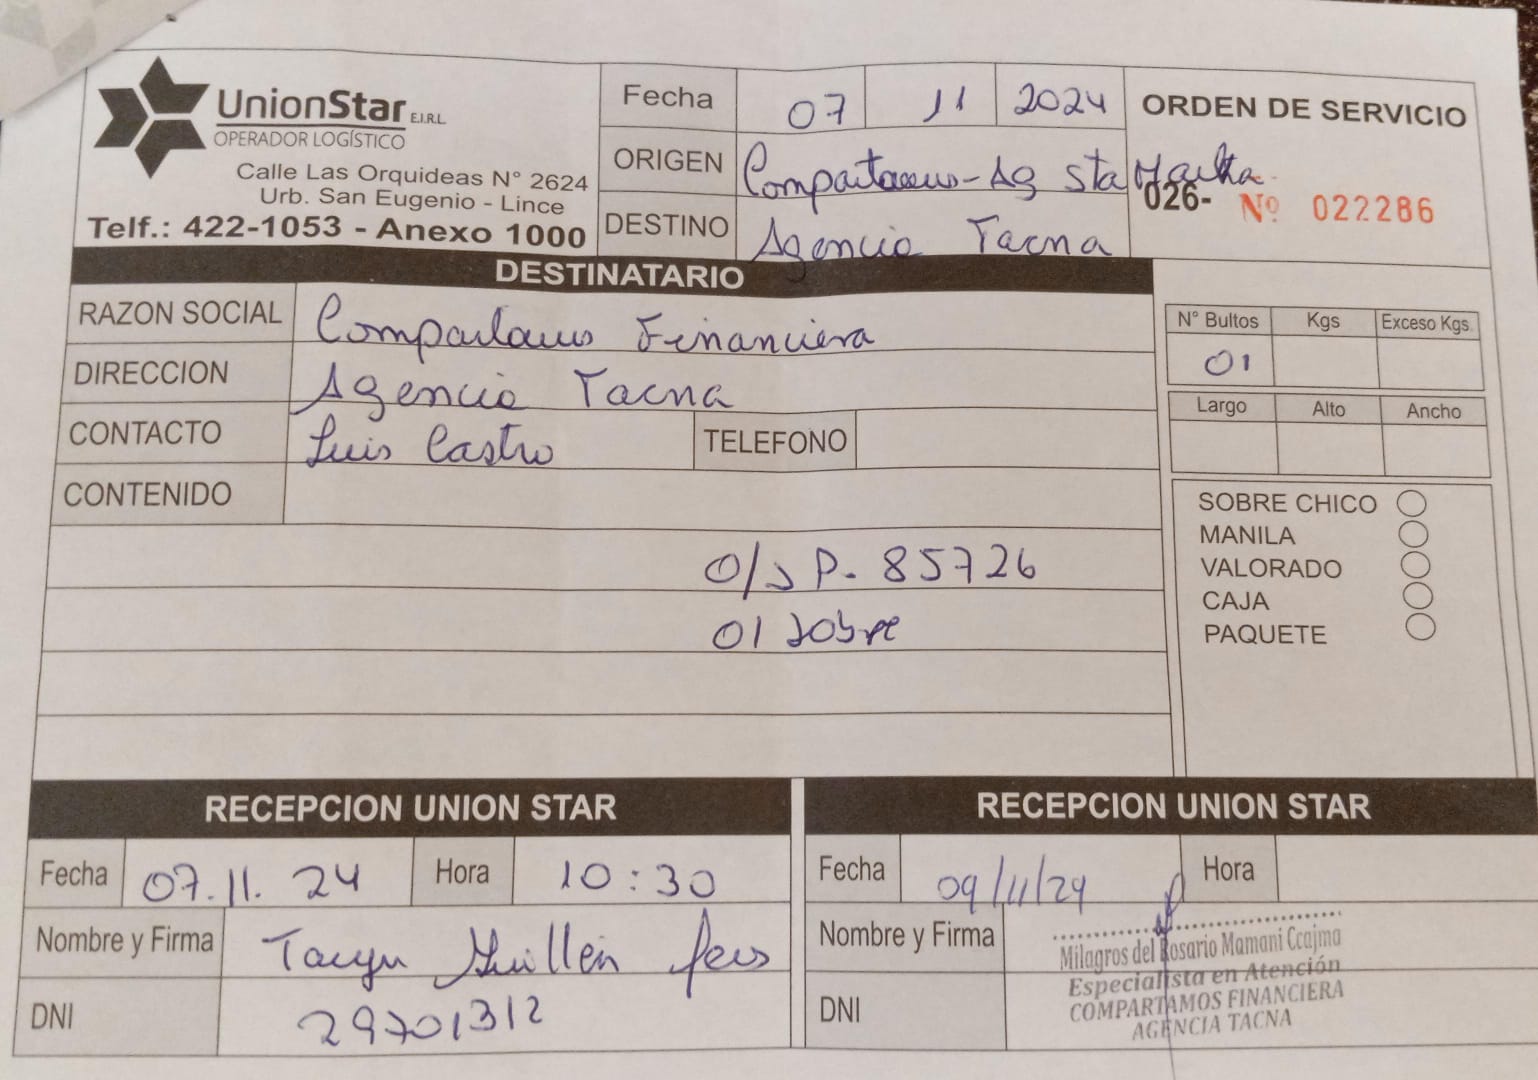 UnionStar E.I.R.L.
OPERADOR LOGÍSTICO
Calle Las Orquideas N° 2624
Urb. San Eugenio - Lince
Telf.: 422-1053 - Anexo 1000
Fecha 07 11 2024
ORIGEN Compartamos - Ag Sta Martha
DESTINO Agencia Tacna
ORDEN DE SERVICIO
026- Nº 022286
DESTINATARIO
RAZON SOCIAL Compartamos Financiera
DIRECCION Agencia Tacna
CONTACTO Luis Castro TELEFONO
CONTENIDO
O/S P. 85726
01 Sobre
N° Bultos Kgs Exceso Kgs.
01
Largo Alto Ancho
SOBRE CHICO
MANILA
VALORADO
CAJA
PAQUETE
RECEPCION UNION STAR
Fecha 07.11.24 Hora 10:30
Nombre y Firma Guillén
DNI 29701312
RECEPCION UNION STAR
Fecha 09/11/24 Hora
Nombre y Firma
Milagros del Rosario Mamani Ccajma
Especialista en Atención
COMPARTAMOS FINANCIERA
AGENCIA TACNA
DNI